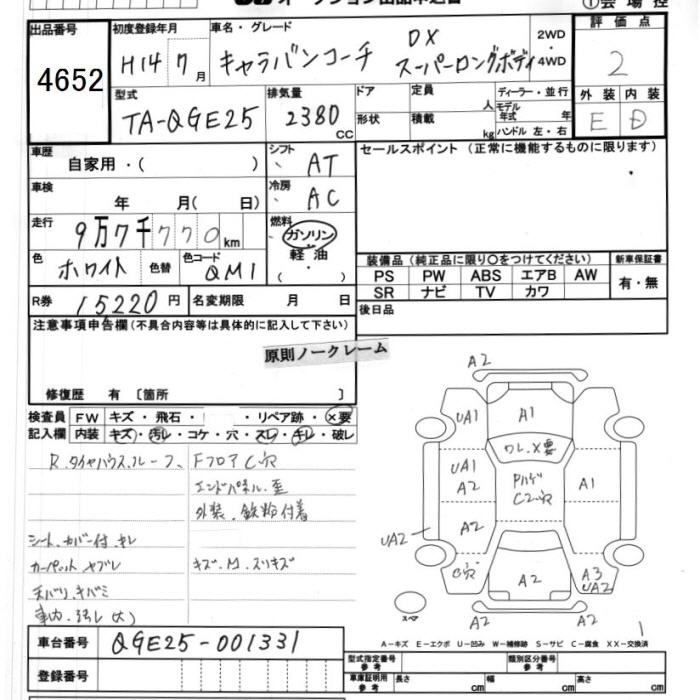 出品番号
4652
初度登録年月
H14 7月
車名・グレード
キャラバンコーチ DX
スーパーロングボディ
2WD
4WD
評価点
2
外装 内装
E D
型式
TA-QGE25
排気量
2380
CC
ドア
形状
定員
人
積載
kg
ディーラー・並行
モデル年式 年
ハンドル 左・右
車歴
自家用・( )
シフト
AT
車検
年 月( 日)
冷房
AC
走行
9万7千770km
燃料
ガソリン
軽油
( ・ )
色
ホワイト
色替
色コード
QM1
R券
15220円
名変期限 月 日
セールスポイント (正常に機能するものに限ります)
装備品(純正品に限り○をつけてください)
新車保証書
PS PW ABS エアB AW
SR ナビ TV カワ
有・無
後日品
注意事項申告欄(不具合内容等は具体的に記入して下さい)
原則ノークレーム
修復歴 有 〔箇所 〕
検査員 FW キズ・飛石・ ・リペア跡・×要
記入欄 内装 キズ・汚レ・コケ・穴・スレ・キレ・破レ
R.タイヤハウス.ルーフ、
Fフロア C穴
エンドパネル.歪
外装.鉄粉付着
シート.カバー付.キレ
カーペット.ヤブレ
キズ.M.スリキズ
天バリ.キバミ
車内.ヨゴレ(大)
A2
UA1
A1
ワレ.X要
UA1
A2
Pハゲ
C穴
A1
A2
UA2
C穴
A2
A3
UA2
A2
A2
スペア
1
A-キズ E-エクボ U-凹み W-補修跡 S-サビ C-腐食 XX-交換済
車台番号
QGE25-001331
登録番号
型式指定番号 参考
類別区分番号 参考
車庫証明用 参考
長さ cm
幅 cm
高さ cm